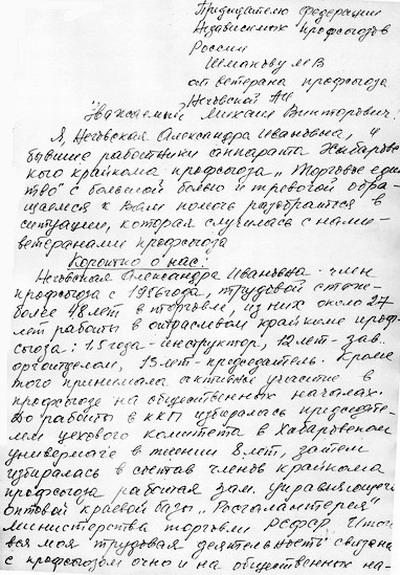 Председателю Федерации
Независимых Профсоюзов
России
Шмакову МВ
от ветерана профсоюза
Жеговской АИ
Уважаемый Михаил Викторович!
Я, Александра Ивановна, и
бывшие работники аппарата Хабаровс-
кого крайкома профсоюза „Торговое един
ство" с большой болью и тревогой обра-
щаемся к Вам помочь разобраться в
ситуации, которая случилась с нами-
ветеранами профсоюза
Коротко о нас:
Александра Ивановна - член
профсоюза с 1956 года, трудовой стаж-
более 48 лет в торговле, из них около 27
лет работы в отраслевом крайкоме проф-
союза: 1.5 года - инструктор, 12 лет - зав.
орготделом, 13 лет - председатель. Кроме
того принимала активное участие в
профсоюзе на общественных началах.
До работы в ККП избиралась председате-
лем цехового комитета в Хабаровском
универмаге в течении 8 лет, затем
избиралась в состав членов крайкома
профсоюза работая зам. управляющего
оптовой краевой базы „Росгалантерея"
министерства торговли РСФСР.
вся моя трудовая деятельность связана
с профсоюзом очно и на общественных на-